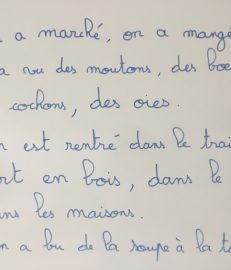 a marché, on a mangé
a vu des moutons, des
cochons, des oies.
est rentré dans le
en bois, dans le
les maisons.
a bu de la soupe à la